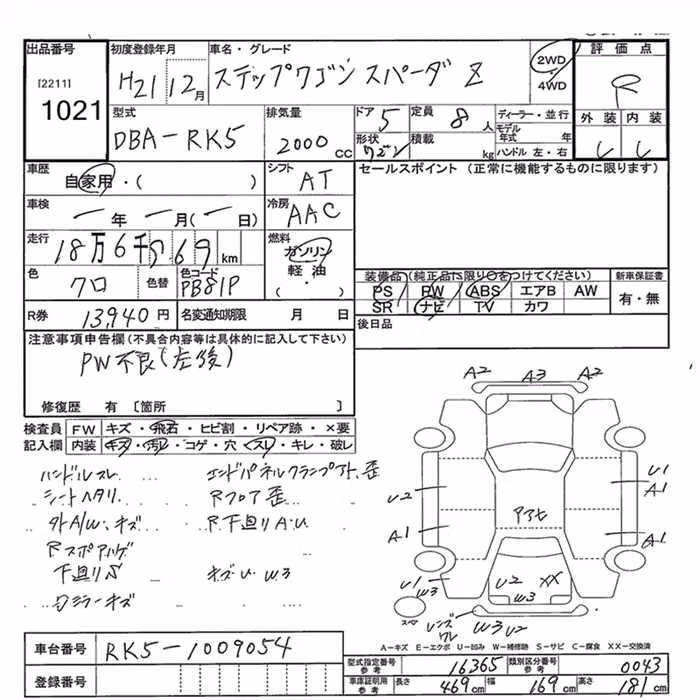 出品番号 初度登録年月 車名・グレード 評価点
[2211] 1021
H21 12月 ステップワゴン スパーダ Z 2WD 4WD R
型式 排気量 ドア 5 定員 8人 ディーラー・並行 外装 内装
DBA-RK5 2000cc 形状 ワゴン 積載 kg モデル年式 年 ハンドル 左・右
車歴 自家用・( ) シフト AT セールスポイント (正常に機能するものに限ります)
車検 ー年 ー月(ー日) 冷房 AAC
走行 18万6千769km 燃料 ガソリン 軽油 ( ・ )
色 クロ 色替 色コード PB81P 装備品(純正品に限り○をつけてください) 新車保証書
PS PW ABS エアB AW 有・無
SR ナビ TV カワ
R券 13,940円 名変通知期限 月 日 後日品
注意事項申告欄(不具合内容等は具体的に記入して下さい)
PW不良(左後)
修復歴 有 〔箇所 〕
検査員 FW キズ・飛石・ヒビ割・リペア跡・×要
記入欄 内装 キズ・汚れ・コゲ・穴・スレ・キレ・破レ
ハンドルスレ エンドパネルクランプアト、歪
シートヘタリ Rフロア歪
外A/W、キズ R下廻りA・U
Rスポアルゲ
下廻りS キズ・U W3
ミラーキズ
A2 A3 A2
U2 U1 A1
A1 アアセ A1
U1 W3 U2 XX W3
スペア レンズワレ W3 U2
A-キズ E-エクボ U-凹み W-補修跡 S-サビ C-腐食 XX-交換済
車台番号 RK5-1009054
登録番号
型式指定番号参考 16365 類別区分番号参考 0043
車庫証明用参考 長さ 469cm 幅 169cm 高さ 181cm